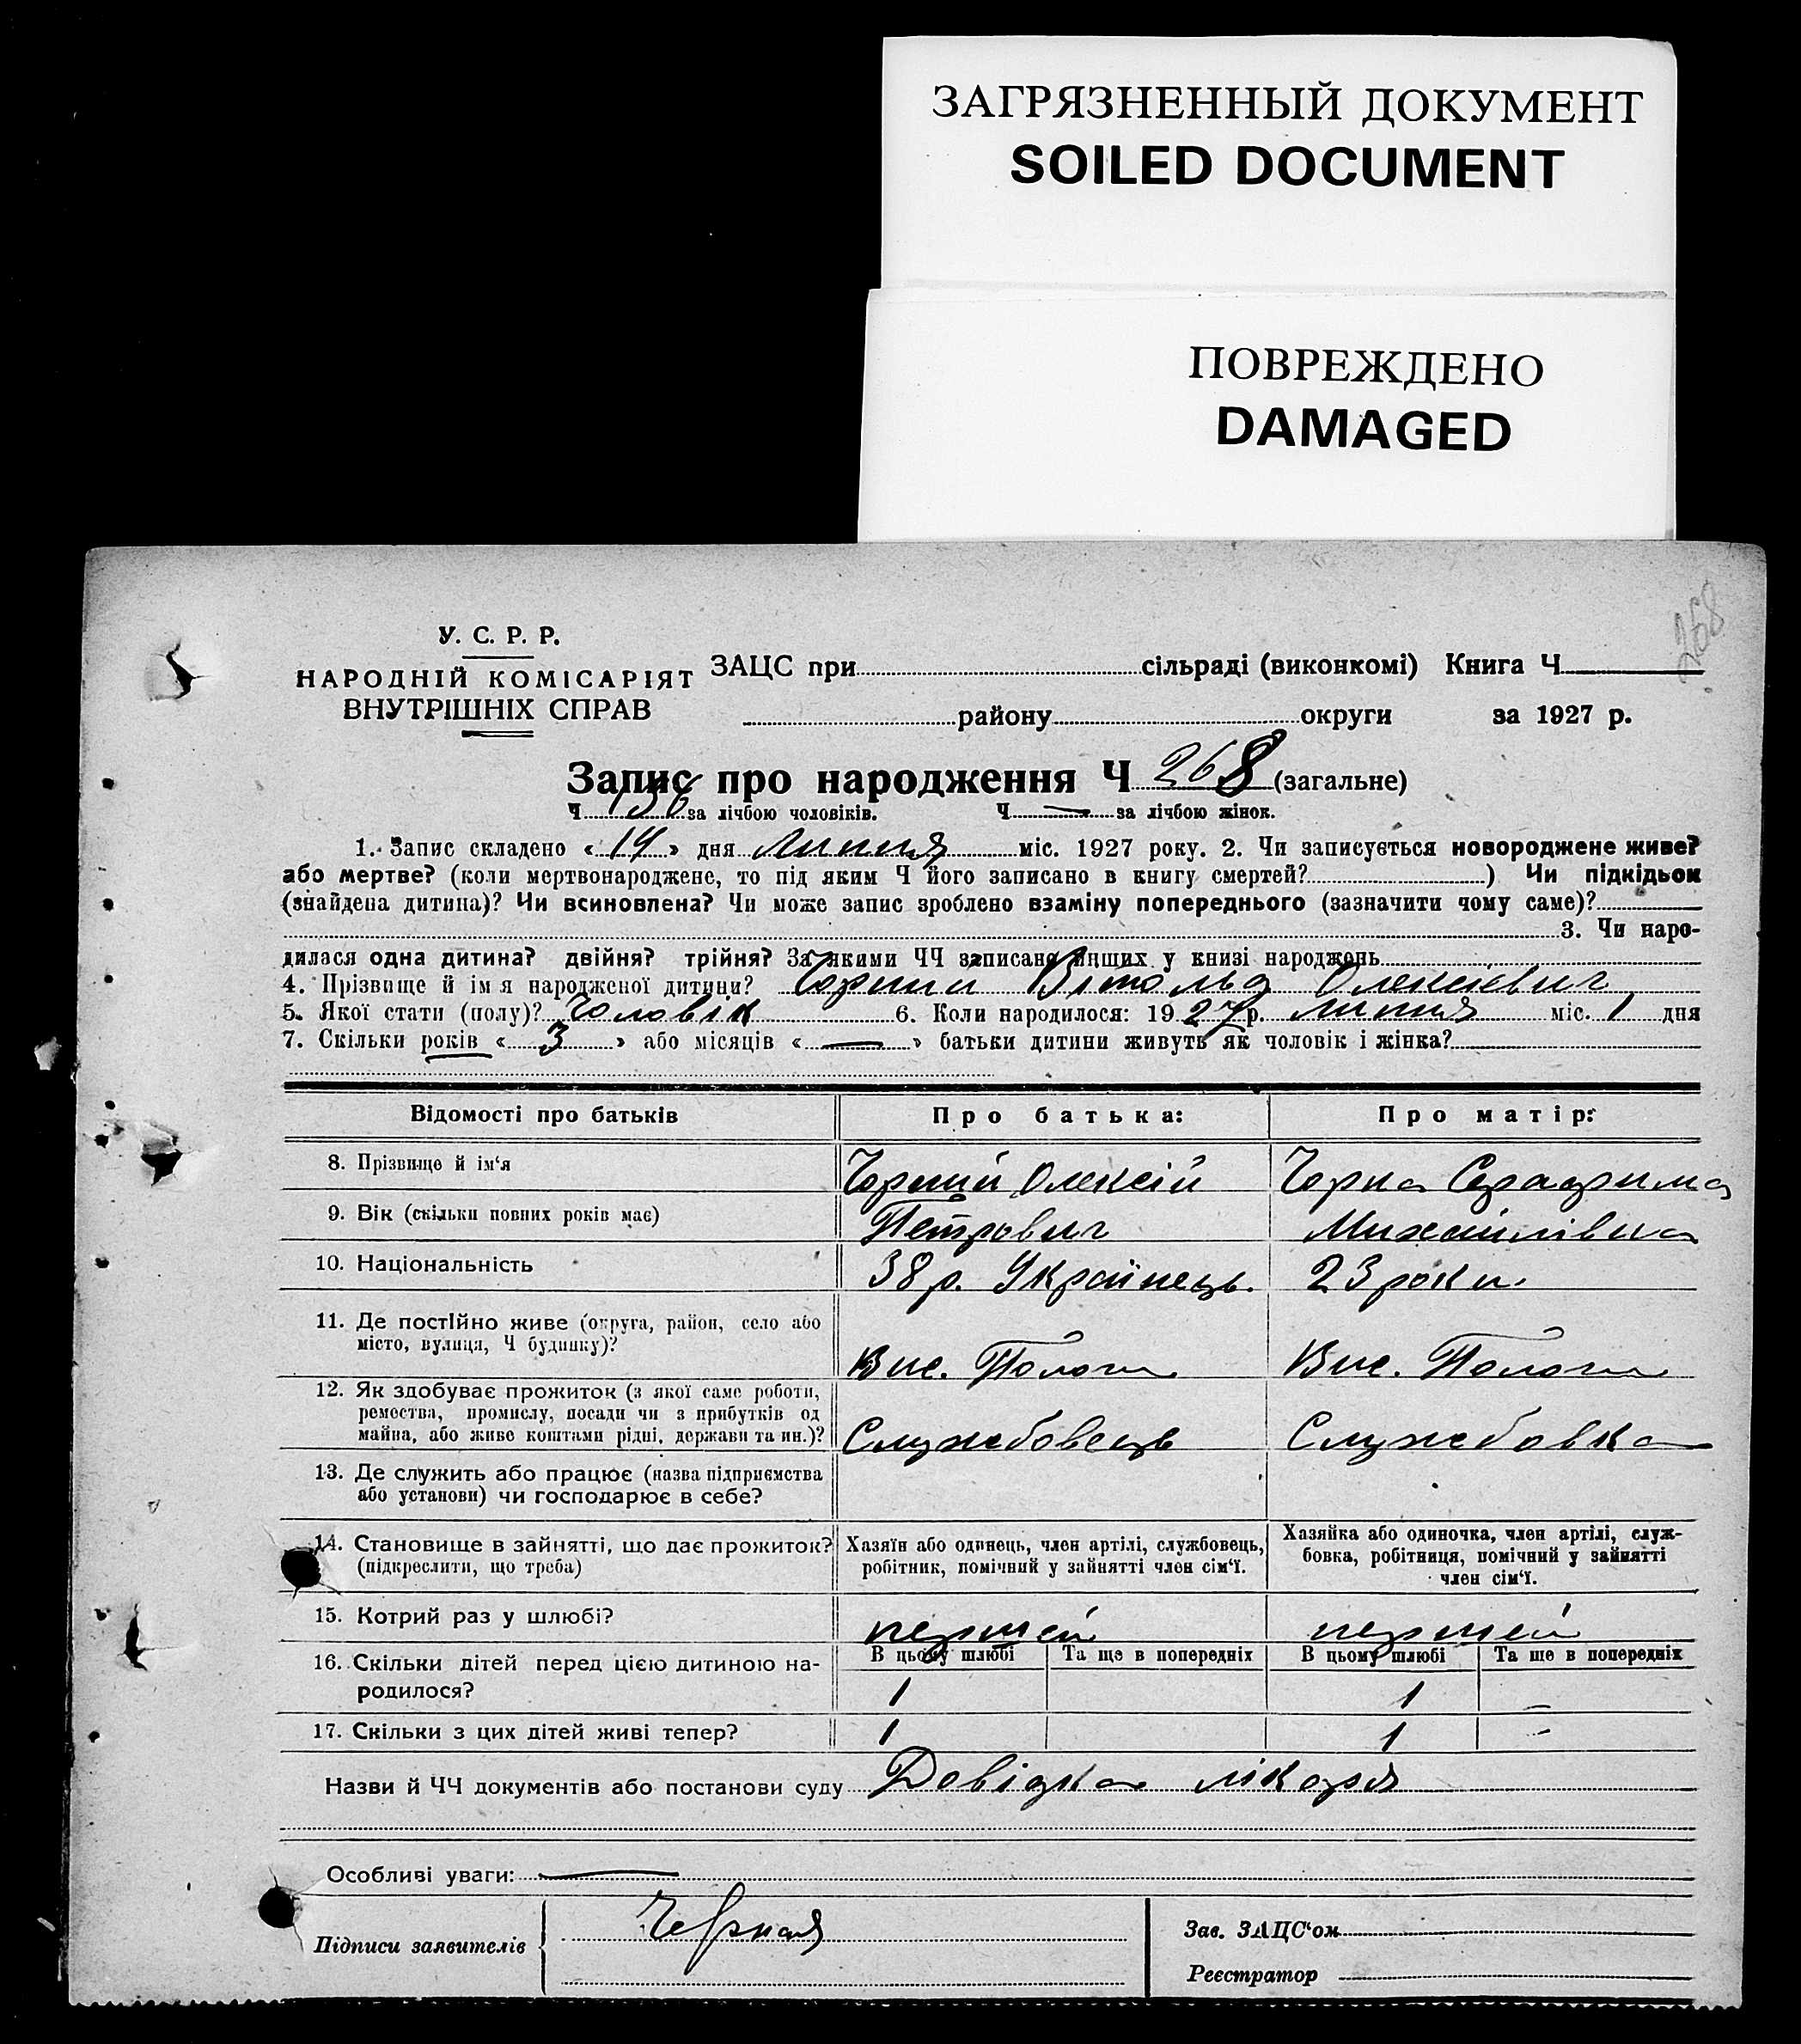 ЗАГРЯЗНЕННЫЙ ДОКУМЕНТ
SOILED DOCUMENT
ПОВРЕЖДЕНО
DAMAGED
268
У. С. Р. Р.
НАРОДНІЙ КОМІСАРІЯТ
ВНУТРІШНІХ СПРАВ
ЗАЦС при сільраді (виконкомі) Книга Ч.
району округи за 1927 р.
Запис про народження Ч 268 (загальне)
Ч. 136 за лічбою чоловіків. Ч. — за лічбою жінок.
1. Запис складено « 14 » дня Липня міс. 1927 року. 2. Чи записується новороджене живе?
або мертве? (коли мертвонароджене, то під яким Ч його записано в книгу смертей? ) Чи підкідьок
(знайдена дитина)? Чи всиновлена? Чи може запис зроблено взаміну попереднього (зазначити чому саме)?
3. Чи наро-
дилася одна дитина? двійня? трійня? За якими ЧЧ записано инших у книзі народжень
4. Прізвище й ім'я народженої дитини? Чорний Вітольд Олексієвич
5. Якої стати (полу)? Чоловік 6. Коли народилося: 1927р. липня міс. 1 дня
7. Скільки років « 3 » або місяців « — » батьки дитини живуть як чоловік і жінка?
Відомості про батьків Про батька: Про матір:
8. Прізвище й ім'я Чорний Олексій Чорна Серафима
9. Вік (скільки повних років має) Петрович Михайлівна
10. Національність 38 р. Українець. 23 роки.
11. Де постійно живе (округа, район, село або
місто, вулиця, Ч будинку)? Вис. Пологи Вис. Пологи
12. Як здобуває прожиток (з якої саме роботи,
ремества, промислу, посади чи з прибутків од
майна, або живе коштами рідні, держави та ин.)? Службовець Службовка
13. Де служить або працює (назва підприємства
або установи) чи господарює в себе?
14. Становище в зайнятті, що дає прожиток?
(підкреслити, що треба)
Хазяїн або одинець, член артілі, службовець,
робітник, помічний у зайнятті член сім'ї.
Хазяйка або одиночка, член артілі, служ-
бовка, робітниця, помічний у зайнятті
член сім'ї.
15. Котрий раз у шлюбі? першей першей
16. Скільки дітей перед цією дитиною на-
родилося?
В цьому шлюбі Та ще в попередніх В цьому шлюбі Та ще в попередніх
1 1 –
17. Скільки з цих дітей живі тепер? 1 1 –
Назви й ЧЧ документів або постанови суду Довідка лікаря
Особливі уваги: —
Підписи заявителів Черная
Зав. ЗАЦС'ом
Реєстратор